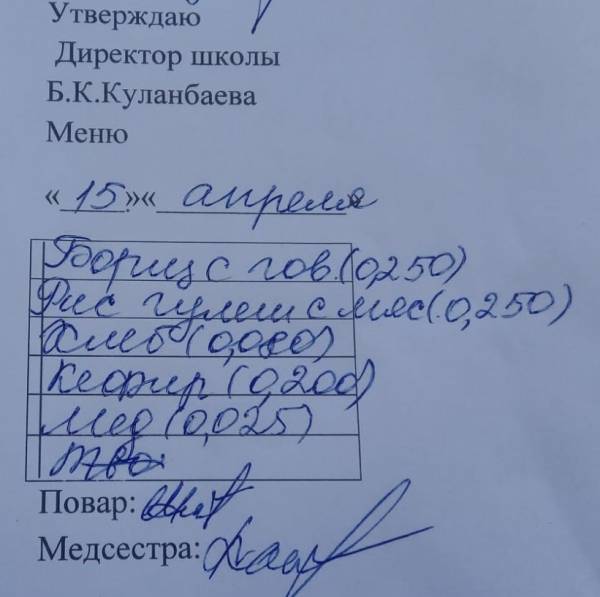 Утверждаю
Директор школы
Б.К.Куланбаева
Меню
«15»«апреля»
Борщ с гов.(0,250)
Рис гулеш с мяс(.0,250)
Хлеб (0,080)
Кефир (0,200)
Мед (0,025)
Повар:
Медсестра: